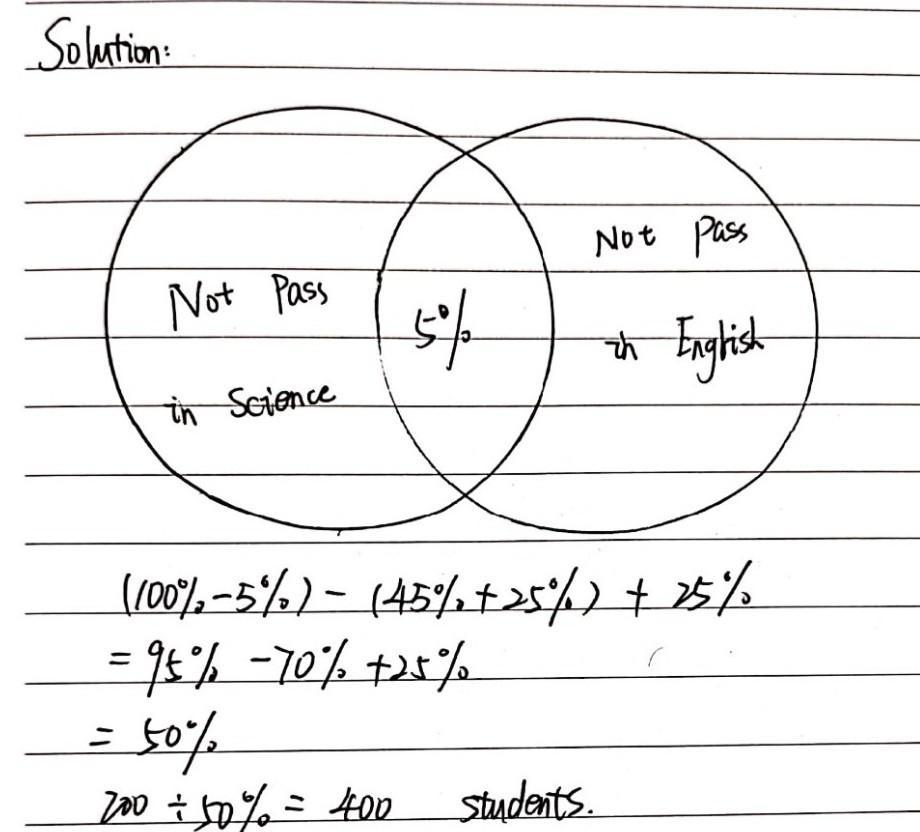 Solution:
Not Pass
in Science
5%
Not Pass
in English
(100%-5%) - (45%+25%) + 25%
= 95% -70% +25%
= 50%
200 ÷ 50% = 400 students.